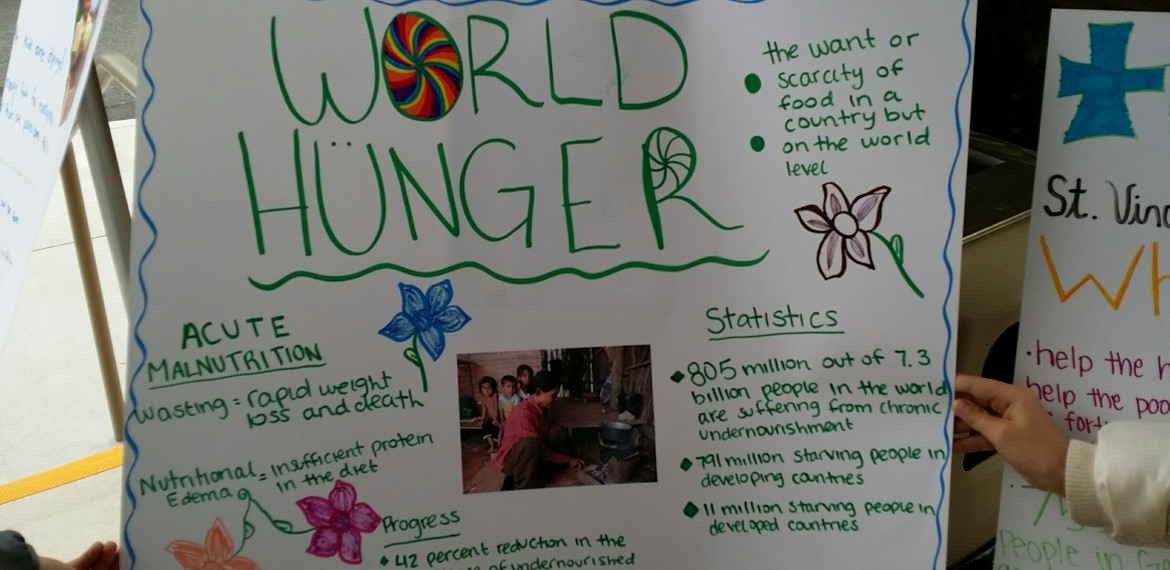 WORLD
HÜNGER
the want or
scarcity of
food in a
country but
on the world
level
ACUTE
MALNUTRITION
wasting = rapid weight
loss and death
Nutritional = insufficient protein
Edema in the diet
Progress
42 percent reduction in the
of undernourished
Statistics
805 million out of 7.3
billion people in the world
are suffering from chronic
undernourishment
791 million starving people in
developing countries
11 million starving people in
developed countries
St.
help the
help the
people in